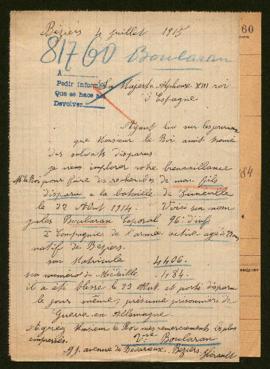 Béziers 4 juillet 1915
817/00 Boularan
A
Pedir informes
Que se hace al
Devolver
Sa Majesté Alphonse XIII roi
d'Espagne
Ayant lu sur les journaux
que Monsieur le Roi avait trouvé
des soldats disparus
je viens implorer votre bienveillance
pour faire des recherches de mon fils
disparu à la bataille de Lunéville
le 22 Août 1914. Voici son nom
Jules Boularan Caporal 96e d'inf
Compagnie de l'armée active agé de
natif de Béziers.
son Matricule 4406.
son numéro de Médaille 1484.
il a été blessé le 22 Aout et porté disparu
le jour même, présumé prisonnier de
Guerre en Allemagne
Agréez Monsieur le Roi mes remerciements les plus
empressés.
Vve Boularan
avenue de Bédarieux, Béziers
Hérault
60
84